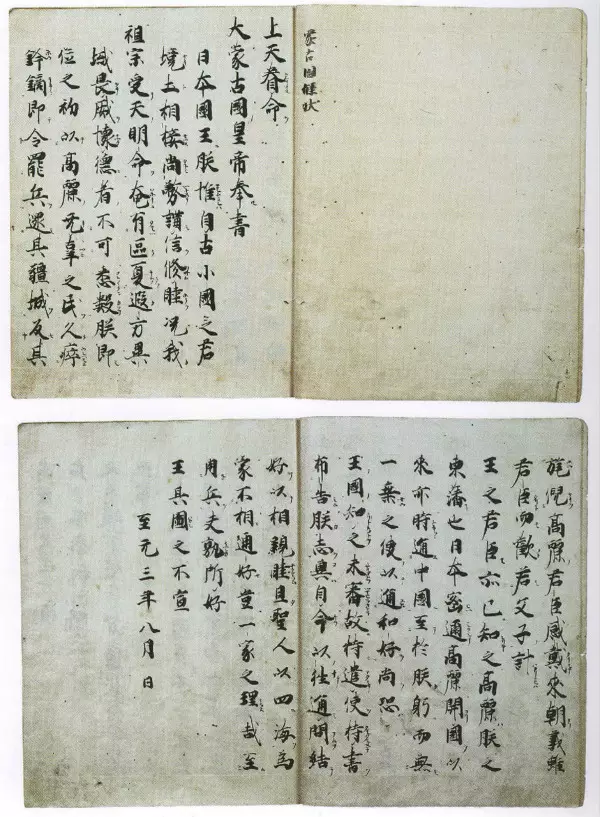 蒙古国牒状
上天眷命
大蒙古國皇帝奉書
日本國王朕惟自古小國之君
境土相接尚務講信修睦況我
祖宗受天明命奄有區夏遐方異
域畏威懷德者不可悉數朕即
位之初以高麗无辜之民久瘁
鋒鏑即令罷兵還其疆域反其
旄倪高麗君臣感戴来朝義雖
君臣而歡若父子計
王之君臣亦已知之高麗朕之
東藩也日本密邇高麗開國以
来亦時通中國至於朕躬而無
一乗之使以通和好尚恐
王國知之未審故特遣使持書
布告朕志冀自今以往通問結
好以相親睦且聖人以四海為
家不相通好豈一家之理哉至
用兵夫孰所好
王其圖之不宣
至元三年八月 日